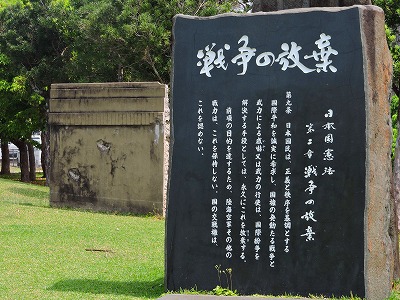 戦争の放棄
日本国憲法
第二章 戦争の放棄
第九条 日本国民は、正義と秩序を基調とする
国際平和を誠実に希求し、国権の発動たる戦争と
武力による威嚇又は武力の行使は、国際紛争を
解決する手段としては、永久にこれを放棄する。
前項の目的を達するため、陸海空軍その他の
戦力は、これを保持しない。国の交戦権は、
これを認めない。